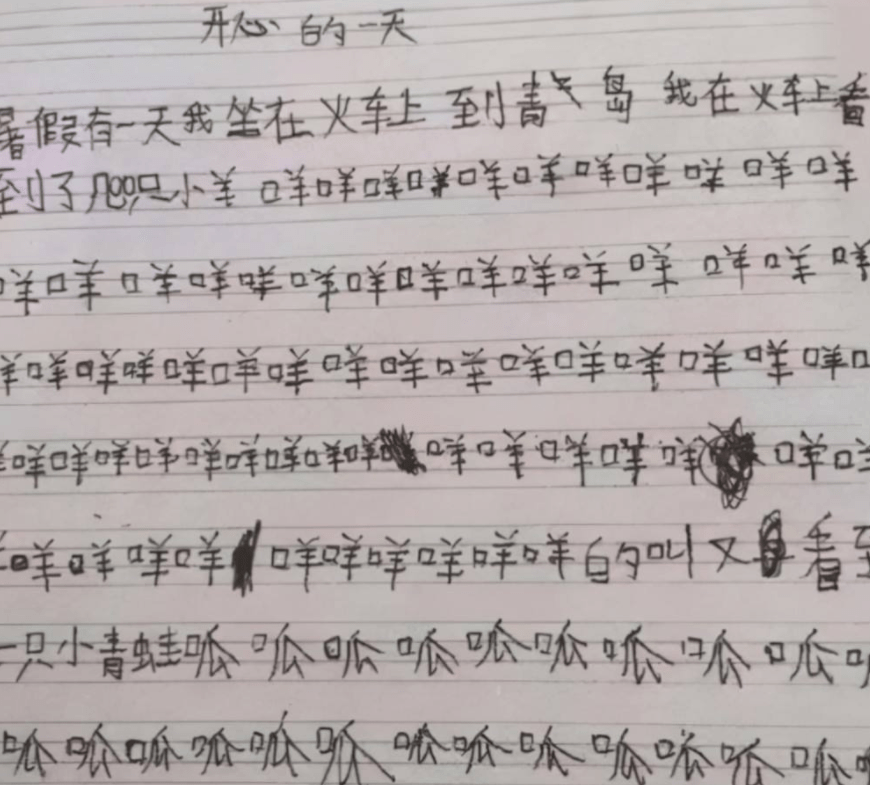 开心的一天
暑假有一天我坐在火车上到青岛我在火车上看
到了几只小羊咩咩咩咩咩咩咩咩咩咩咩
咩咩咩咩咩咩咩咩咩咩咩咩咩咩咩
咩咩咩咩咩咩咩咩咩咩咩咩咩咩咩咩
咩咩咩咩咩咩咩咩咩咩咩咩咩咩咩咩
咩咩咩咩咩咩咩咩咩咩的叫又看到
一只小青蛙呱呱呱呱呱呱呱呱呱呱
呱呱呱呱呱呱呱呱呱呱呱呱呱